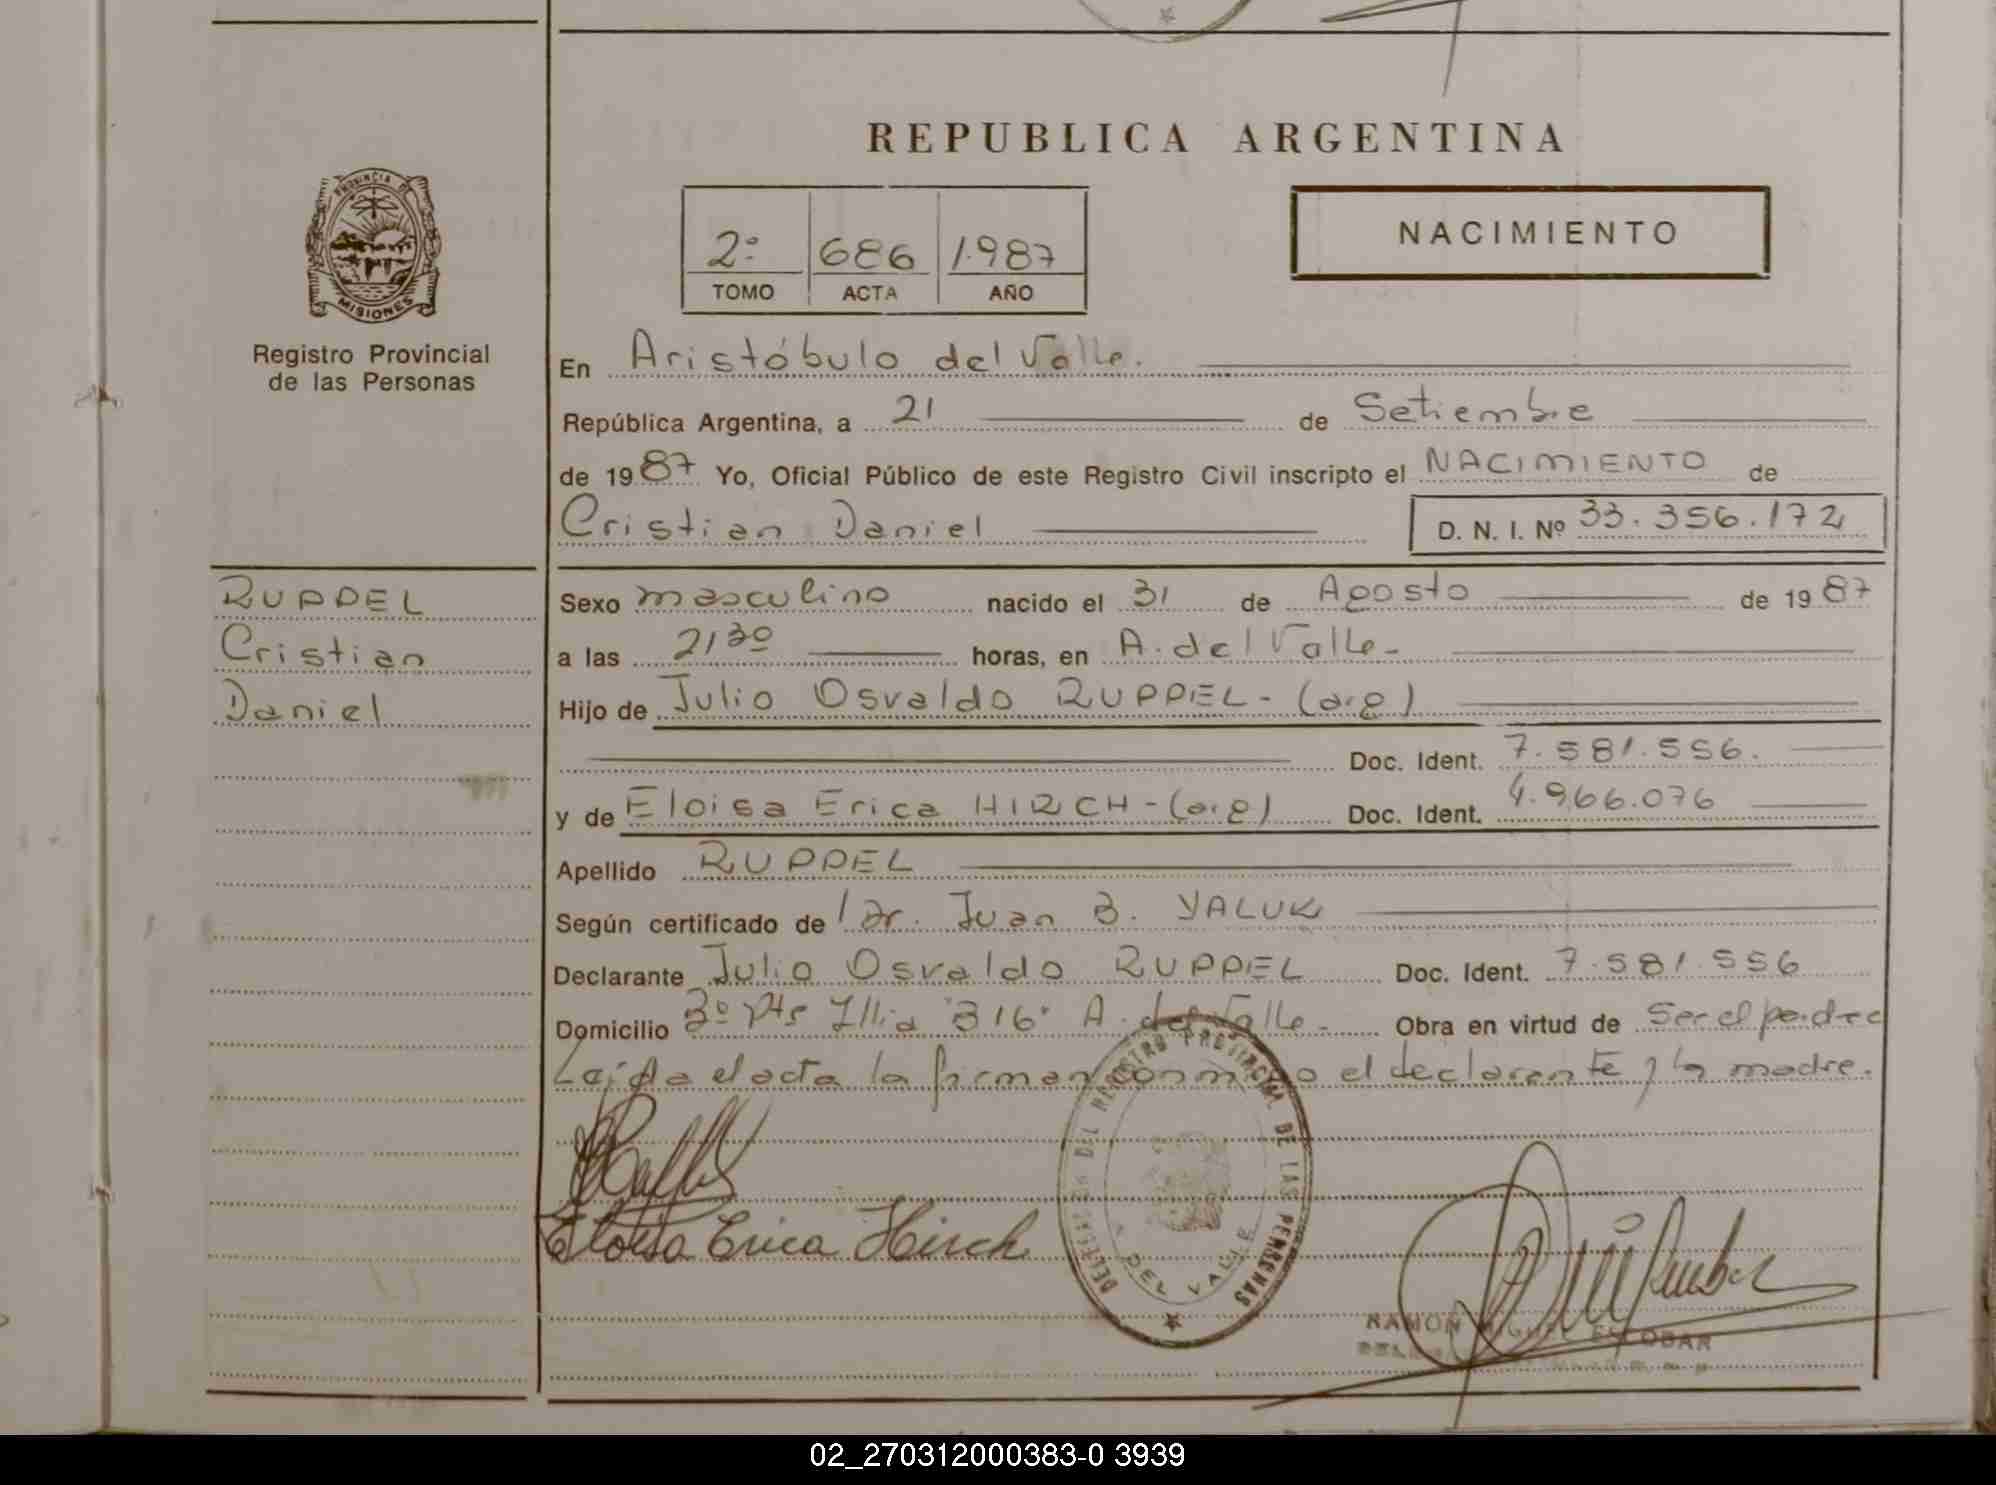 REPUBLICA ARGENTINA
PROVINCIA DE
MISIONES
Registro Provincial
de las Personas
2º 686 1.987
TOMO ACTA AÑO
NACIMIENTO
En Aristóbulo del Valle.
República Argentina, a 21 de Setiembre
de 1987 Yo, Oficial Público de este Registro Civil inscripto el NACIMIENTO de
Cristian Daniel D. N. I. Nº 33.356.172
RUPPEL
Cristian
Daniel
Sexo masculino nacido el 31 de Agosto de 1987
a las 2130 horas, en A. del Valle-
Hijo de Julio Osvaldo RUPPEL- (arg)
Doc. Ident. 7.581.556.
y de Eloisa Erica HIRCH-(arg) Doc. Ident. 4.966.076
Apellido RUPPEL
Según certificado de Dr. Juan B. YALUK
Declarante Julio Osvaldo RUPPEL Doc. Ident. 7.581.556
Domicilio Bº Pte Illia "316" A. del Valle- Obra en virtud de Ser el padre
Leída el acta la firman conmigo el declarante y la madre.
Eloisa Erica Hirch
DEL REGISTRO PROVINCIAL DE LAS PERSONAS
DEL VALLE
RAMON MIGUEL ESCOBAR
02_270312000383-0 3939